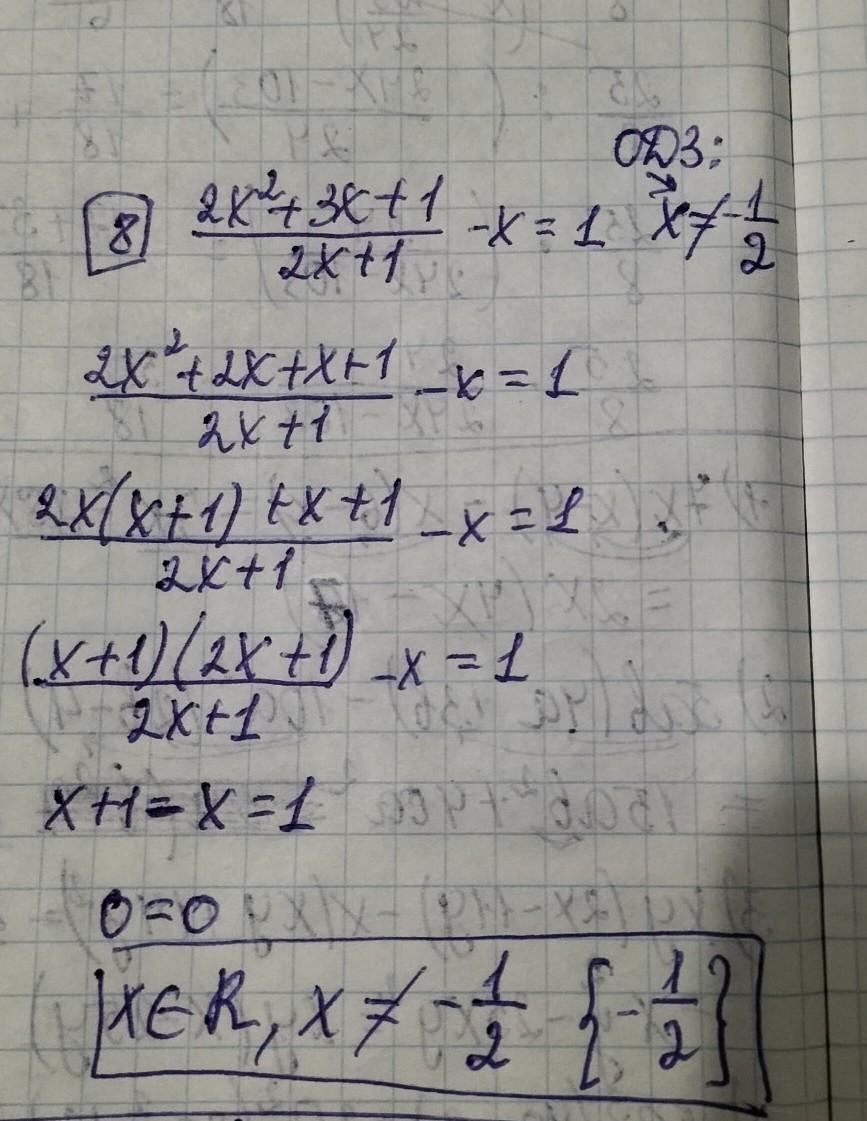 ОДЗ:
8 (2x²+3x+1)/(2x+1) -x = 1 x≠-1/2
(2x²+2x+x+1)/(2x+1) -x = 1
(2x(x+1)+x+1)/(2x+1) -x = 1
((x+1)(2x+1))/(2x+1) -x = 1
x+1-x=1
0=0
x∈R, x≠-1/2 {-1/2}